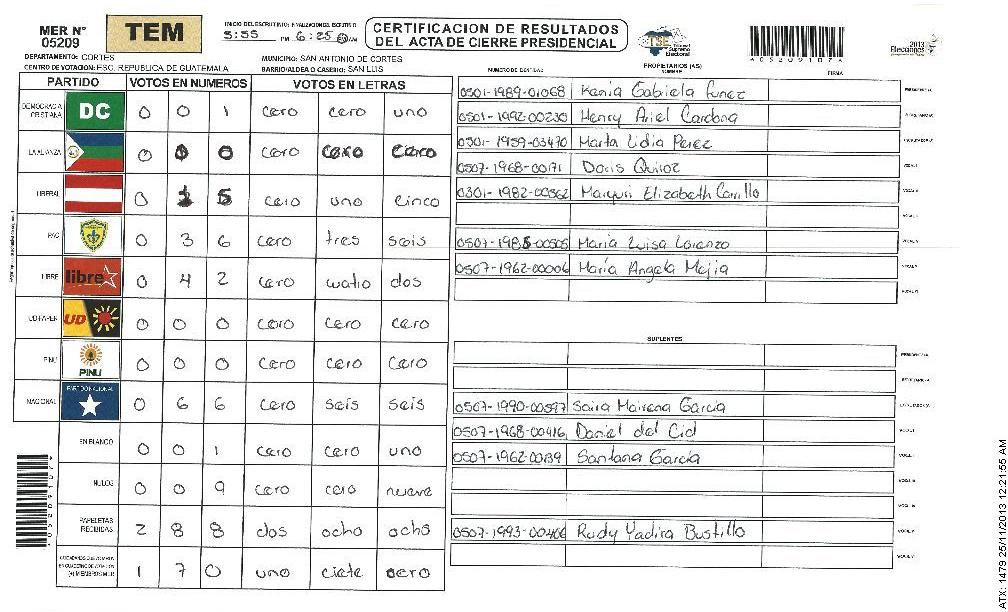 MER N° 05209
TEM
INICIO DEL ESCRUTINIO: FINALIZACION DEL ESCRUTINIO
5:55 PM 6:25 AM
CERTIFICACION DE RESULTADOS
DEL ACTA DE CIERRE PRESIDENCIAL
TSE Tribunal Supremo Electoral
4052091074
2013 Elecciones
DEPARTAMENTO: CORTES
MUNICIPIO: SAN ANTONIO DE CORTES
CENTRO DE VOTACION: ESC. REPUBLICA DE GUATEMALA
BARRIO/ALDEA O CASERIO: SAN LUIS
PARTIDO VOTOS EN NUMEROS VOTOS EN LETRAS
DEMOCRACIA CRISTIANA DC 0 0 1 cero cero uno
LA ALIANZA 0 0 0 cero cero cero
LIBERAL 0 1 5 cero uno cinco
PAC 0 3 6 cero tres seis
LIBRE libre 0 4 2 cero cuatro dos
UD-FAPER UD 0 0 0 cero cero cero
PINU PINU 0 0 0 cero cero cero
NACIONAL PARTIDO NACIONAL 0 6 6 cero seis seis
EN BLANCO 0 0 1 cero cero uno
NULOS 0 0 9 cero cero nueve
PAPELETAS RECIBIDAS 2 8 8 dos ocho ocho
CIUDADANOS QUE VOTARON EN CUADERNO DE VOTACION (+) MIEMBROS MER 1 7 0 uno ciete cero
NUMERO DE IDENTIDAD PROPIETARIOS (AS) NOMBRE FIRMA
0501-1989-01068 Kenia Gabriela Funez PRESIDENTE/A
0501-1992-00230 Henry Ariel Cardona SECRETARIO/A
0501-1959-03470 Marta Lidia Perez ESCRUTADOR/A
0507-1968-00171 Doris Quiroz VOCAL I
0301-1982-00562 Maryuri Elizabeth Carrillo VOCAL II
VOCAL III
0507-1985-00505 Maria Luisa Lorenzo VOCAL IV
0507-1962-00006 Maria Angela Mejia VOCAL V
VOCAL VI
SUPLENTES
PRESIDENTE/A
SECRETARIO/A
0507-1990-00597 Saira Mairena Garcia ESCRUTADOR/A
0507-1968-00416 Daniel del Cid VOCAL I
0507-1962-00139 Santana Garcia VOCAL II
VOCAL III
0507-1993-00466 Rudy Yadira Bustillo
4052091074
ATX: 1479 25/11/2013 12:21:55 AM